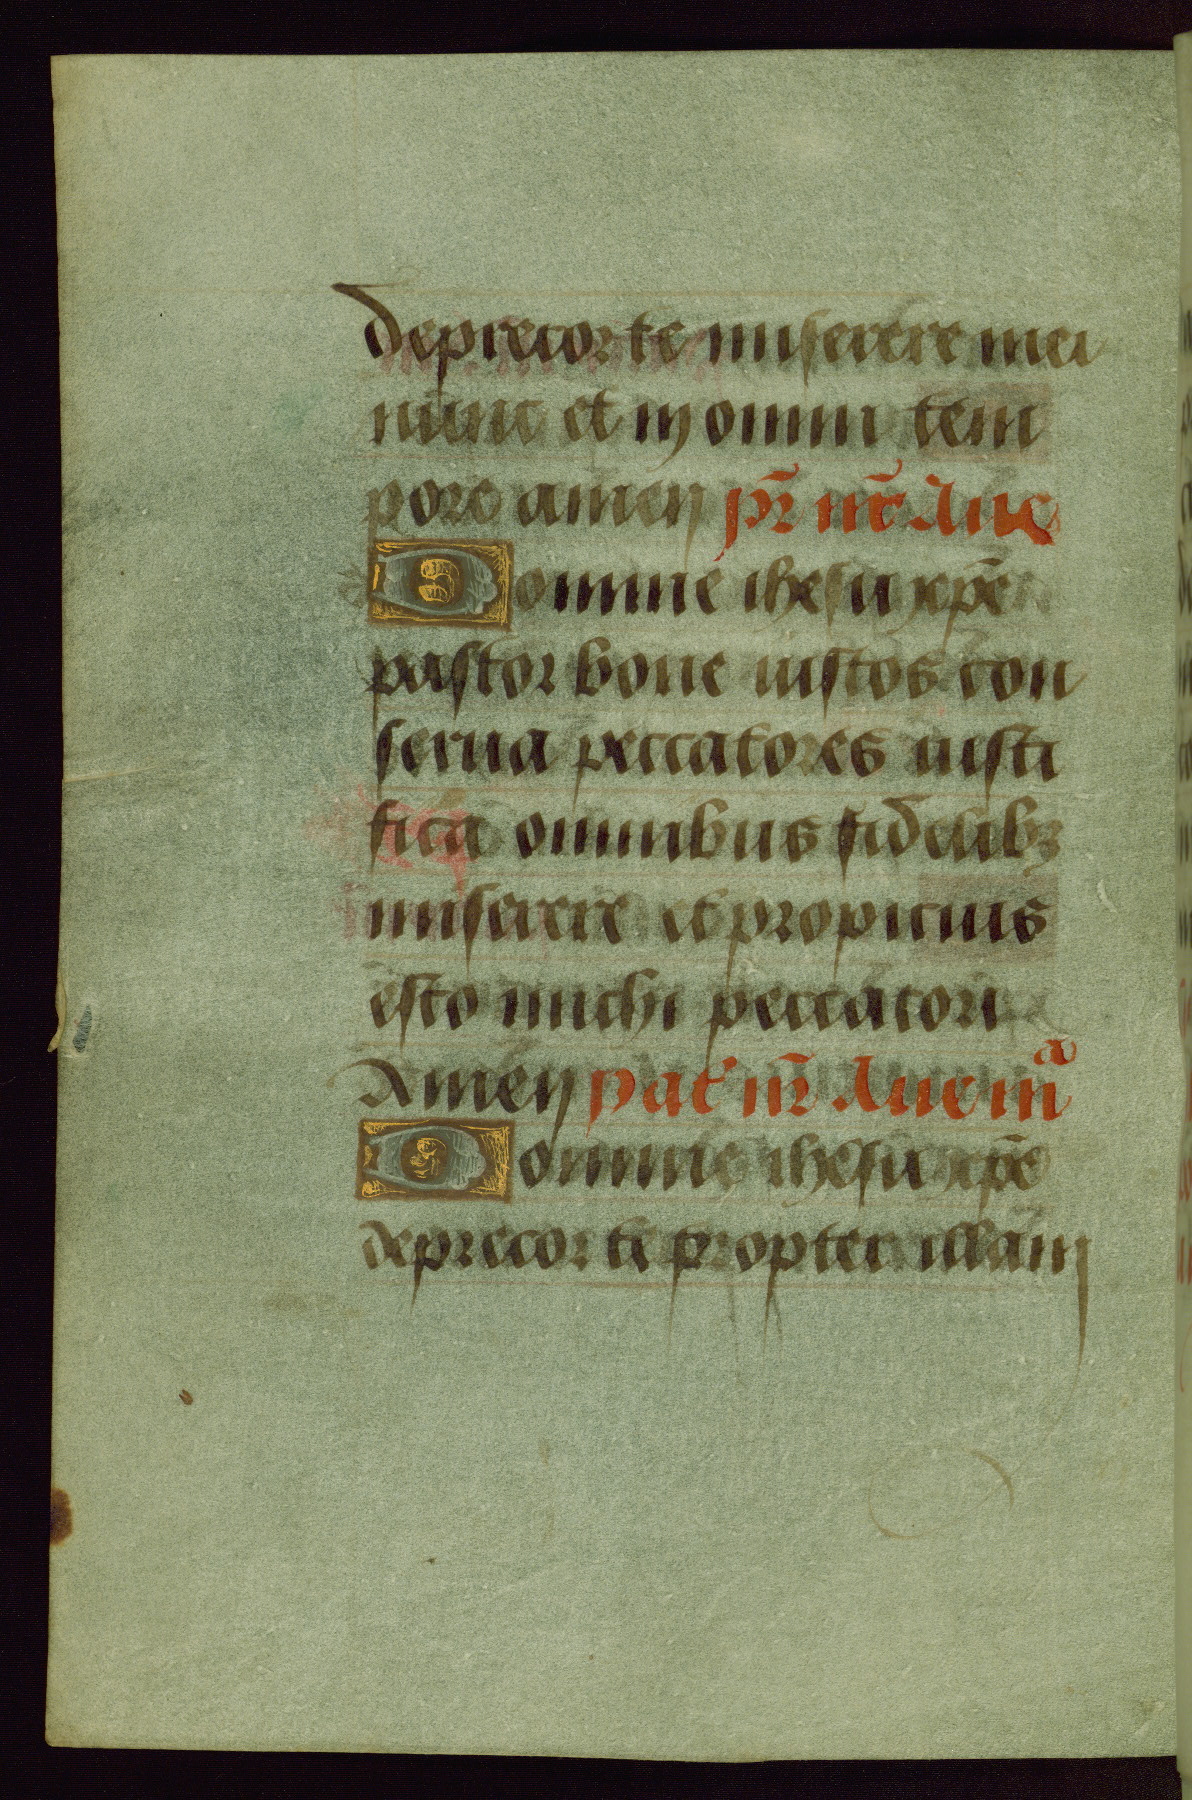 deprecor te miserere mei
nunc et in omni tem
pore amen pr̄ nr̄ Aue
Domine ihesu xpe̅
pastor bone iustos con
serua peccatores iusti
fica omnibus fidelibꝫ
miserere et propicius
esto michi peccatori
Amen Pat nr̄ Aue mᵃ
Domine ihesu xpe̅
deprecor te propter illam